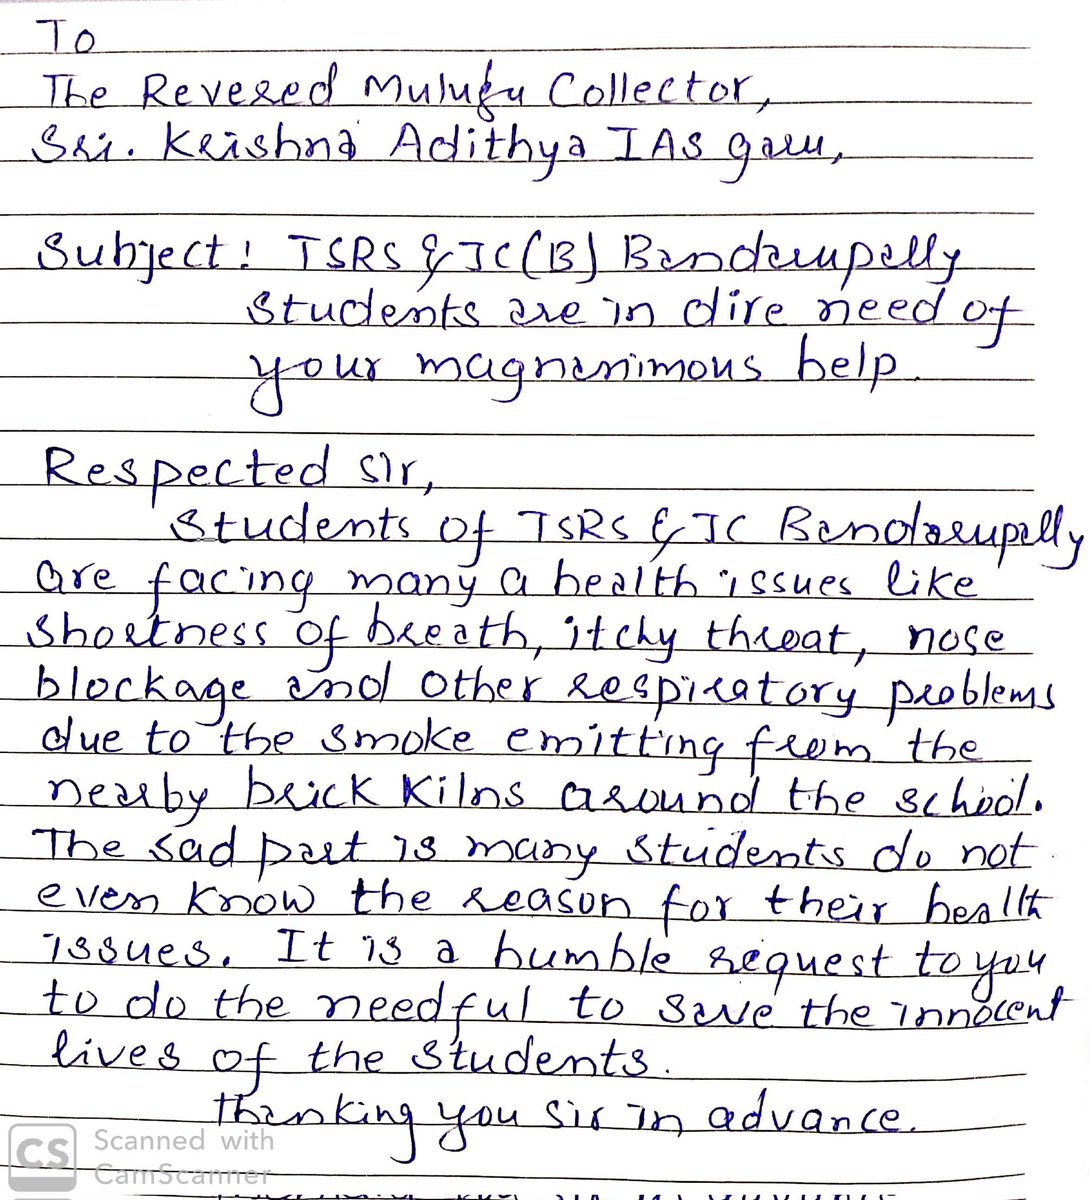 To
The Revered Mulugu Collector,
Sri. Krishna Adithya IAS garu,
Subject: TSRS & JC(B) Bandarupally
Students are in dire need of
your magnanimous help.
Respected Sir,
Students of TSRS & JC Bandarupally
are facing many a health issues like
Shortness of breath, itchy throat, nose
blockage and other respiratory problems
due to the smoke emitting from the
nearby brick kilns around the school.
The sad part is many students do not
even know the reason for their health
issues. It is a humble request to you
to do the needful to save the innocent
lives of the students.
Thanking you sir in advance.
CS Scanned with
CamScanner